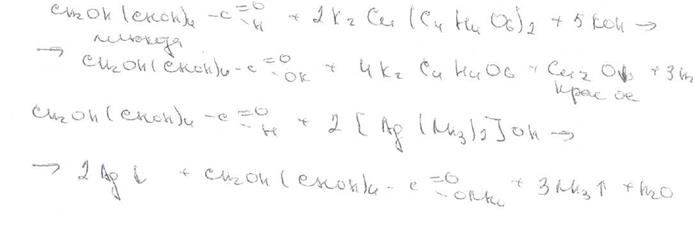 CH2OH(CHOH)4 - C =O -H + 2K2Cu(C4H4O6)2 + 5KOH →
глюкоза
→ CH2OH(CHOH)4 - C =O -OK + 4K2C4H4O6 + Cu2O↓ + 3H2
красн
CH2OH(CHOH)4 - C =O -H + 2[Ag(NH3)2]OH →
→ 2Ag↓ + CH2OH(CHOH)4 - C =O -ONH4 + 3NH3↑ + H2O